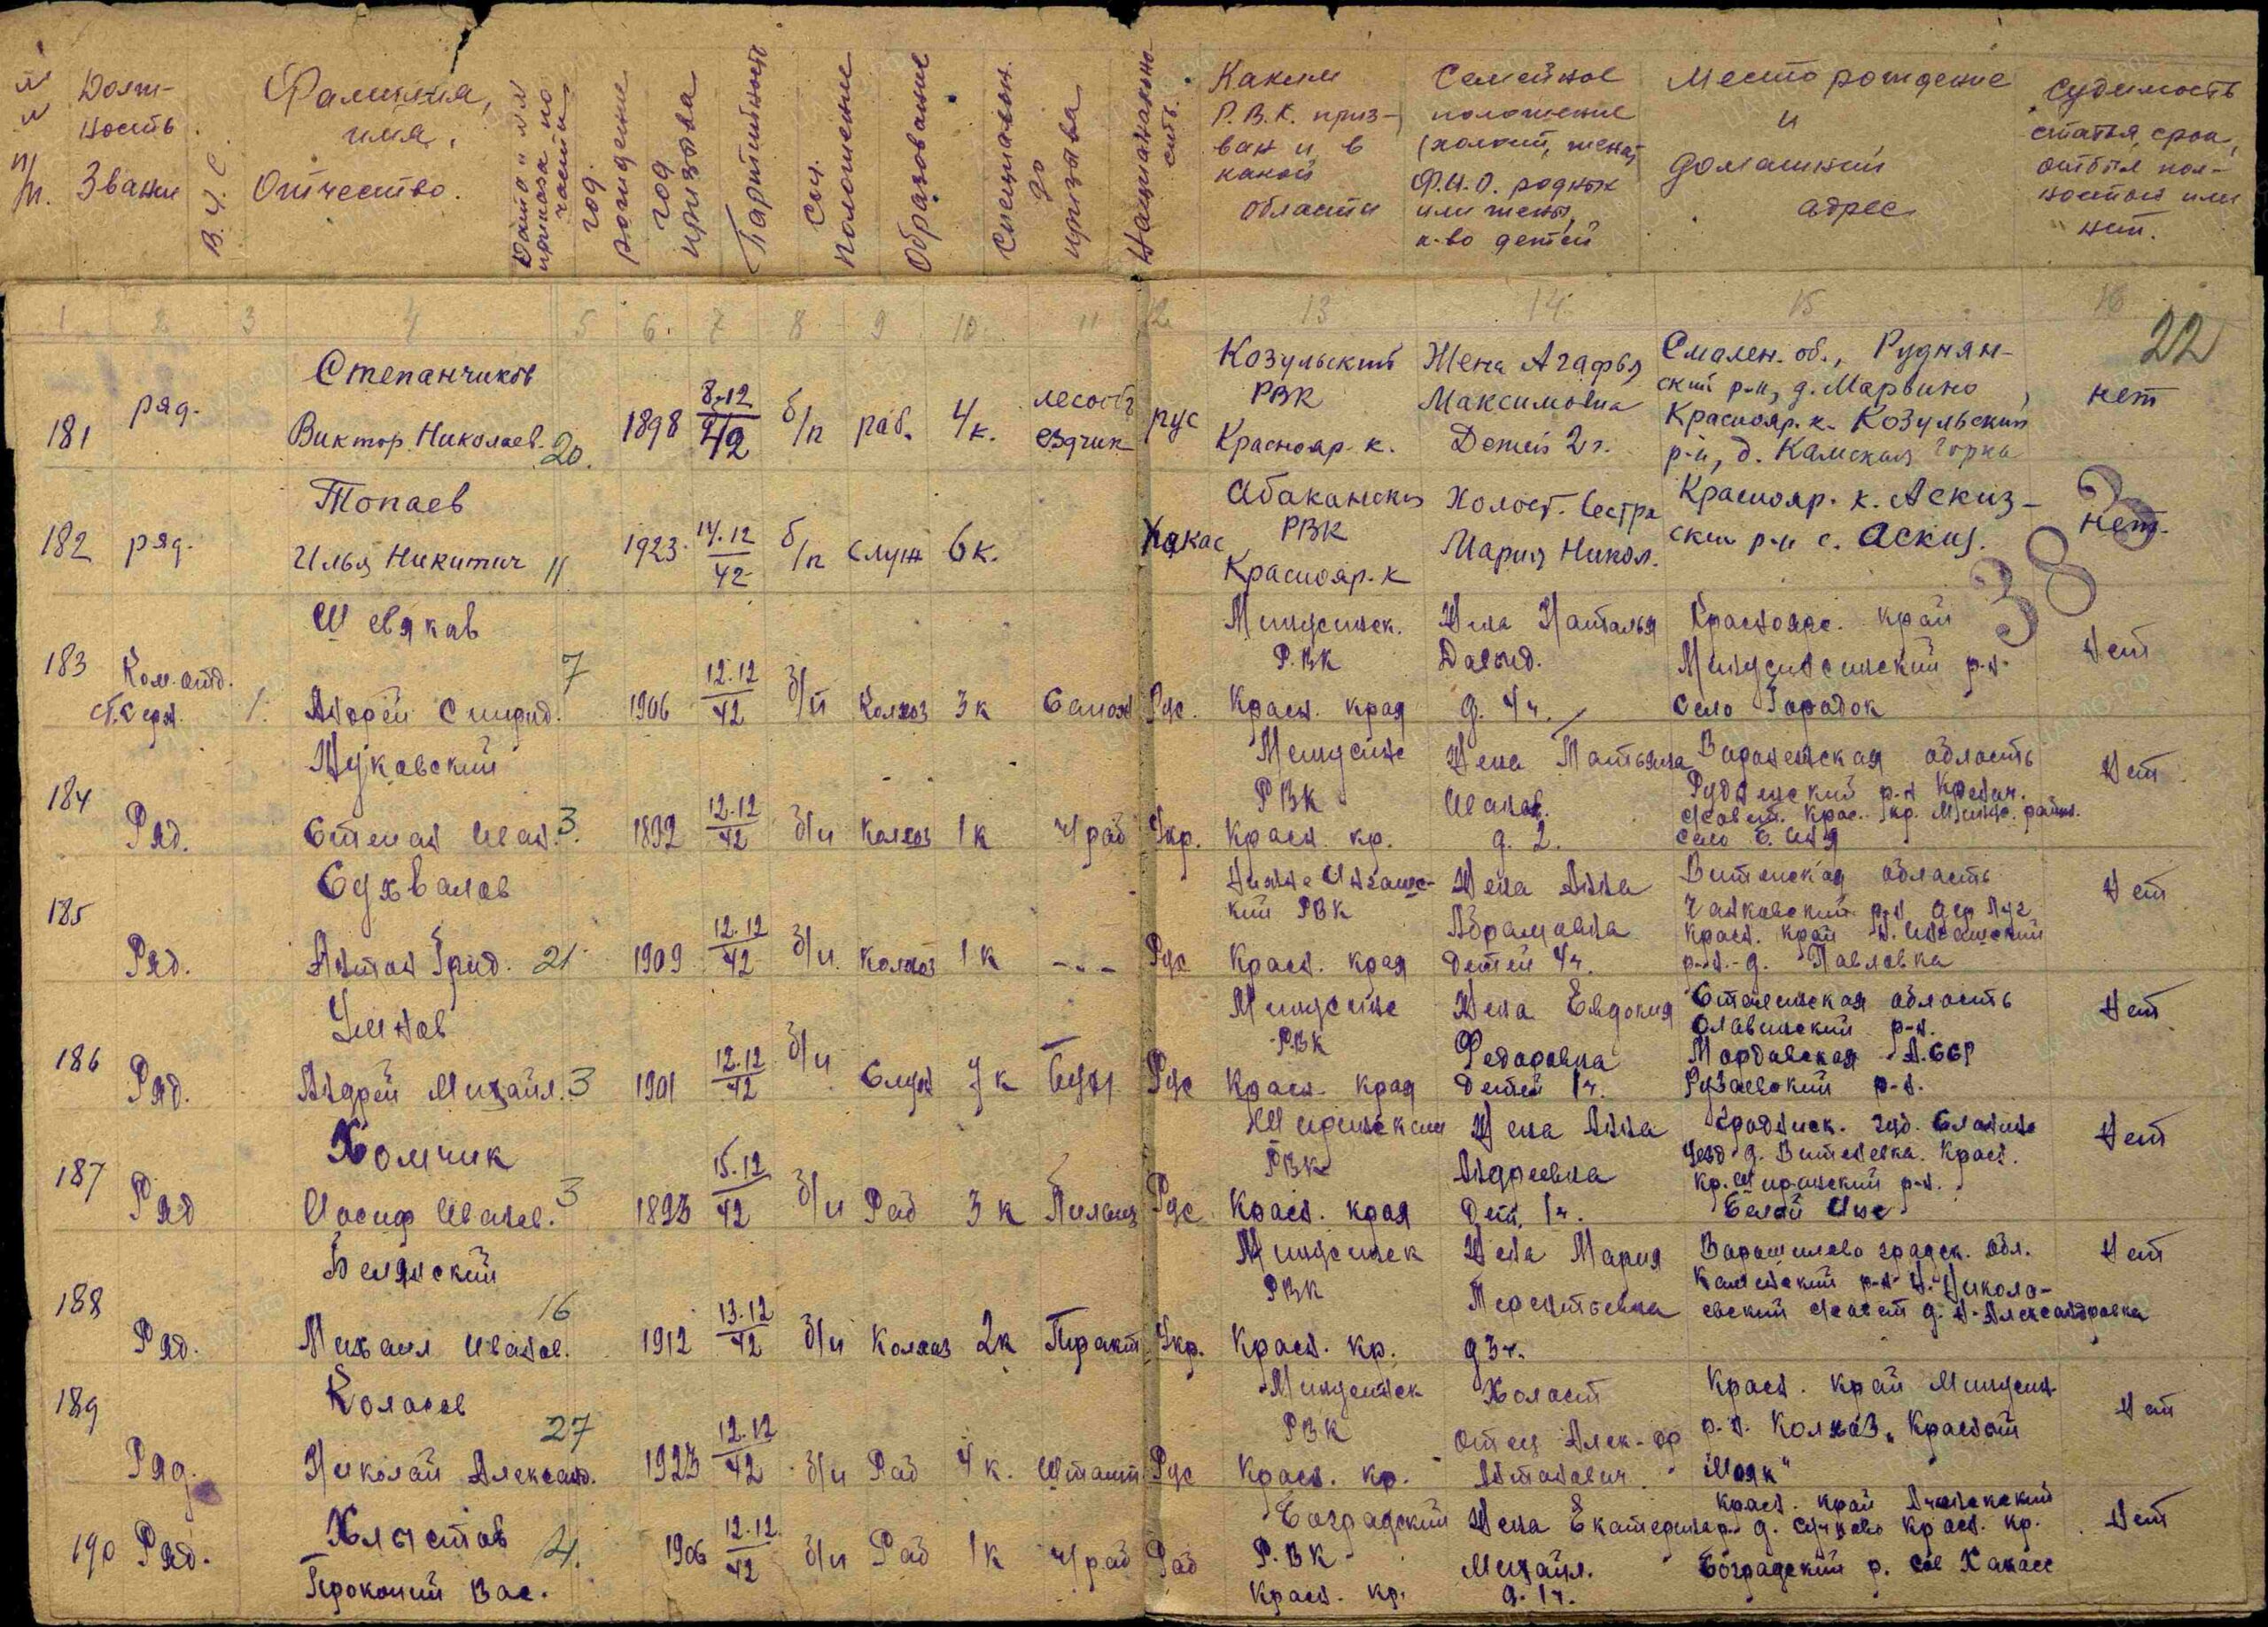 № № п/п.
Долж-
ность
Звание
В.У.С.
Фамилия,
имя,
Отчество.
Дата и №
приказа по
части
год
рождение
год
призыва
Партийность
Соц.
положение
Образование
Специальн.
до
призыва
Национально
сть.
Каким
Р.В.К. приз-
ван и в
какой
области
Семейное
положение
(холост, женат)
Ф.И.О. родных
или жены,
к-во детей
Место рождение
и
домашний
адрес
Судимость
статья, срок,
отбыл пол-
ностью или
нет.
1 2 3 4 5 6. 7 8 9 10. 11 12 13 14 15 16
22
383
181 ряд.
Степанчиков
Виктор Николаев. 20.
1898 8.12/42 б/п раб. 4 к.
рус
Козульский
РВК
Краснояр. к.
Жена Агафья
Максимовна
Детей 2 ч.
Смолен. об., Руднян-
ский р-н, д. Марвино
Краснояр. к. Козульский
р-н, д. Камская Горка
нет
182 ряд.
Топаев
Илья Никитич 11
1923. 14.12/42 б/п служ 6 к.
Хакас
Абакански
РВК
Краснояр. к
Холост. Сестра
Мария Никол.
Краснояр. к. Аскиз-
ский р-н с. Аскиз.
нет.
183 Ком. отд.
Ст. серж. 1.
Шевяков
7
Андрей Спирид.
1906 12.12/42 б/п Колхоз 3 к Сапож Рус.
Минусинск.
Р.ВК
Красн. края
Жена Наталья
Давыд.
д. 4 ч.
Краснояр. край
Минусинский р-н.
село Городок
Нет
184 Ряд.
Жуковский
Степан Иван. 3.
1892 12.12/42 б/п Колхоз 1 к ч/раб Укр.
Минусинс
РВК
Красн. кр.
Жена Татьяна
Иванов.
д. 2.
Воронежская область
село
Нет
185 Ряд.
Сухвалов
Антон Григ. 21
1909 12.12/42 б/п. Колхоз 1 к -.- Рус
Нижне Ингашс-
кий РВК
Красн. края
Жена Анна
Абрамовна
Детей 4 ч.
Витебская область
Красн. край Н. Ингашский
р-н. - д. Павловка
Нет
186 Ряд.
Уинов
Андрей Михайл. 3
1901 12.12/42 б/п Служ 7 к Бухг Рус
Минусинс
РВК
Красн. края
Жена Евдокия
Федоровна
Детей 1 ч.
область
р-н.
Мордовская А.ССР
Рузаевский р-н.
Нет
187 Ряд
Хомчик
Иосиф Иванов. 3
1893 15.12/42 б/п Раб 3 к Рус
Ширинский
РВК
Красн. края
Жена Анна
Андреевна
Дет. 1 ч.
Гродненск. губ.
Уезд д. Красн.
кр. Ширинский р-н.
Белый Июс
Нет
188 Ряд.
Белянский
16
Михаил Иванов.
1912 13.12/42 б/п Колхоз 2 к Тракт Укр.
Минусинск
РВК
Красн. кр.
Жена Мария
Терентьевна
д 3 ч.
Ворошиловоградск. обл.
р-н Н. Николо-
евский с/совет д. Н-Александровка
Нет
189 Ряд.
Колосов
27
Николай Александ.
1923 12.12/42 б/п Раб 4 к. Рус
Минусинск
РВК
Красн. кр.
Холост
Отец Алек-др
Антонович
Красн. край Минусин
р.н. Колхоз „Красный
Маяк"
Нет
190 Ряд.
Хлыстов 4.
Прокопий Вас.
1906 12.12/42 б/п Раб 1 к ч/раб
Боградский
Р.ВК
Красн. кр.
Жена Екатерина
Михайл.
д. 1 ч.
Красн. край Ачинский
р. д. Сучково Красн. кр.
Боградский р.
Нет